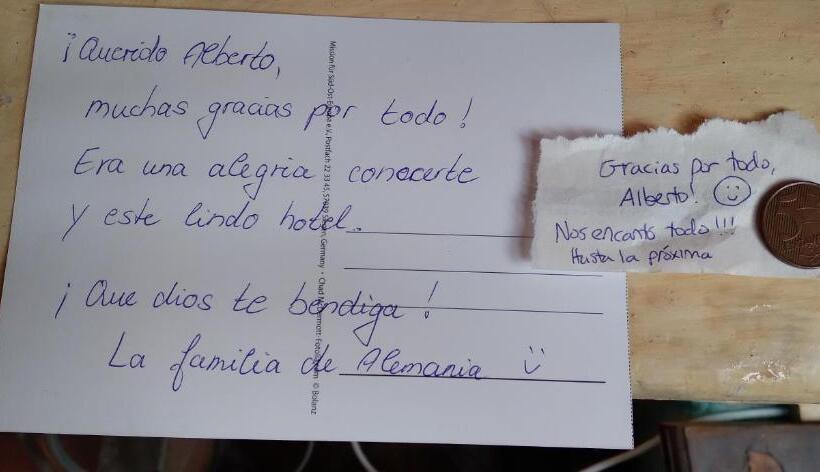 ¡Querido Alberto,
muchas gracias por todo!
Era una alegria conocerte
y este lindo hotel.
¡Que dios te bendiga!
La familia de Alemania ü
Gracias por todo,
Alberto! ☺
Nos encanto todo!!!
Hasta la próxima
Mission für Süd-Ost-Europa e.V., Postfach 22 33 45, Germany • © Bolanz
50